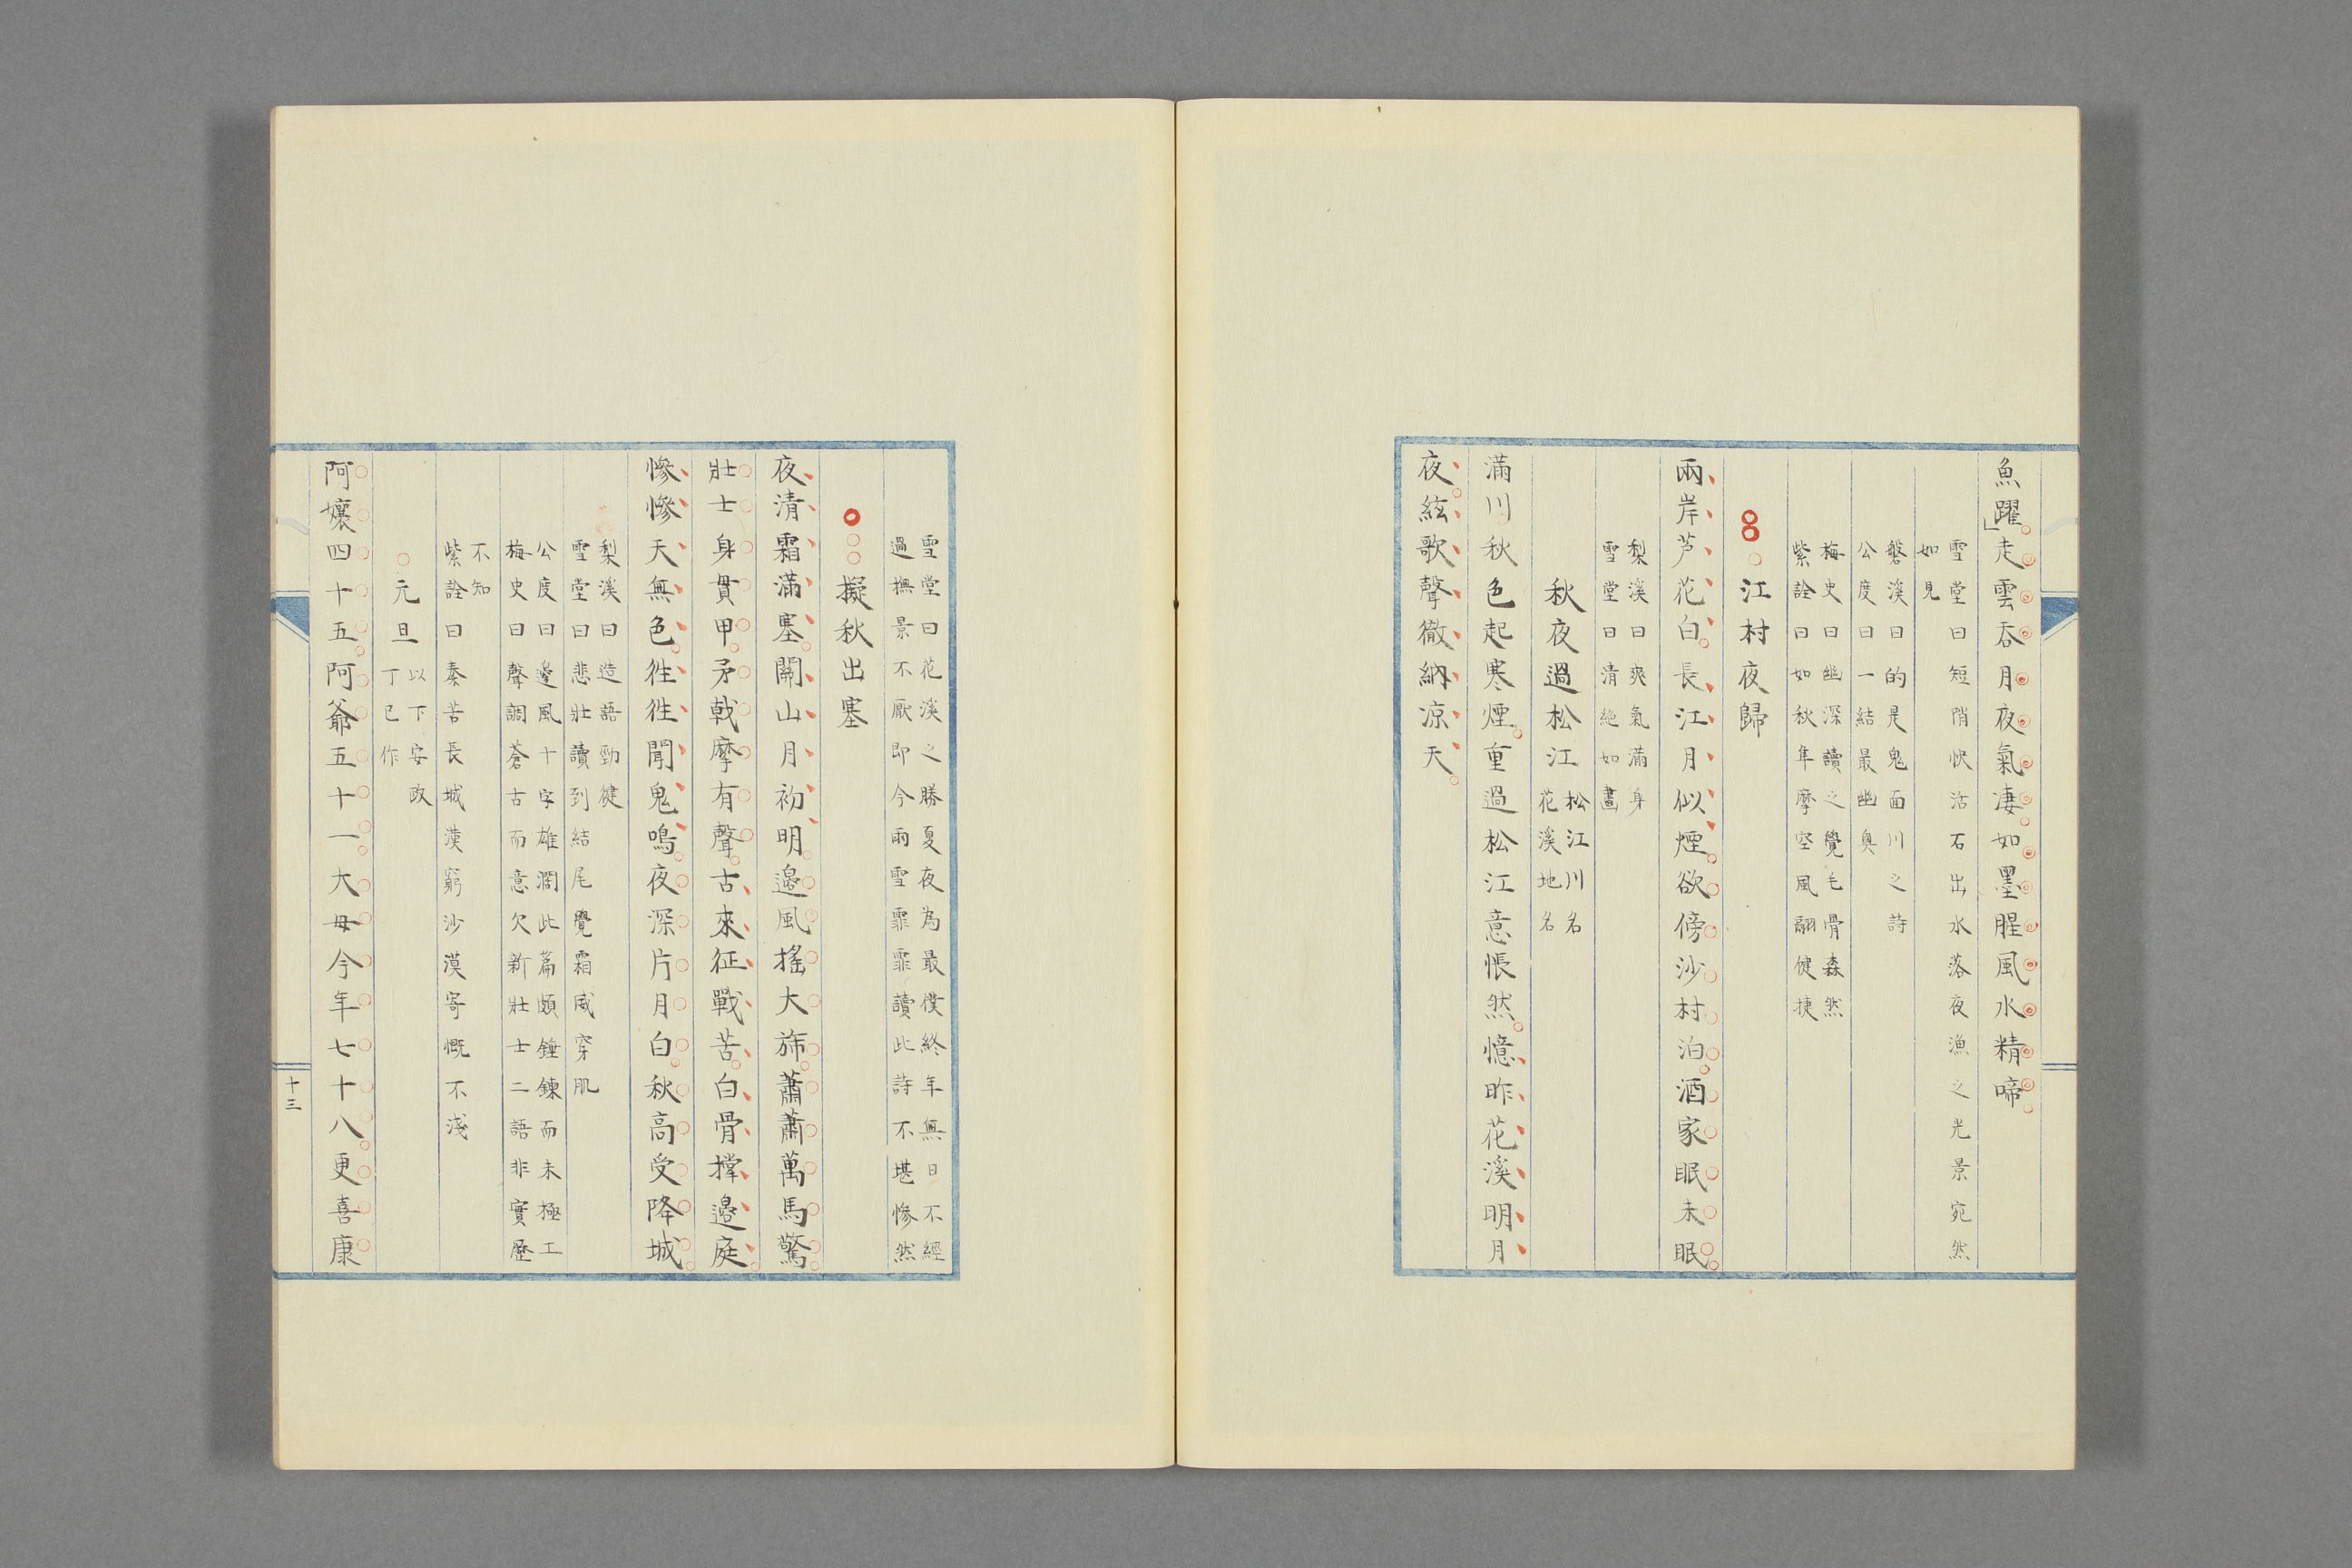 魚躍走雲吞月夜氣凄如墨腥風水精啼
雪堂曰短悄快活石出水落夜漁之光景宛然
如見
磐溪曰的是鬼面川之詩
公度曰一結最幽奥
梅史曰幽深讀之覺毛骨森然
紫詮曰如秋隼摩空風翮健捷
江村夜歸
兩岸芦花白長江月似煙欲傍沙村泊酒家眠未眠
梨溪曰爽氣滿身
雪堂曰清絶如畫
秋夜過松江
松江川名
花溪地名
滿川秋色起寒煙重過松江意悵然憶昨花溪明月
夜絃歌聲徹納凉天
雪堂曰花溪之勝夏夜為最僕終年無日不經
過撫景不厭即今雨雪霏霏讀此詩不堪慘然
擬秋出塞
夜清霜滿塞關山月初明邊風搖大旆蕭蕭萬馬驚
壯士身貫甲矛戟摩有聲古來征戰苦白骨撑邊庭
慘慘天無色徃徃聞鬼鳴夜深片月白秋高受降城
梨溪曰造語勁健
雪堂曰悲壯讀到結尾覺霜威穿肌
公度曰邊風十字雄濶此篇頗錘鍊而未極工
梅史曰聲調蒼古而意欠新壯士二語非實歷
不知
紫詮曰秦苦長城漢窮沙漠寄慨不淺
元旦
以下安政
丁巳作
阿孃四十五阿爺五十一大母今年七十八更喜康
十三